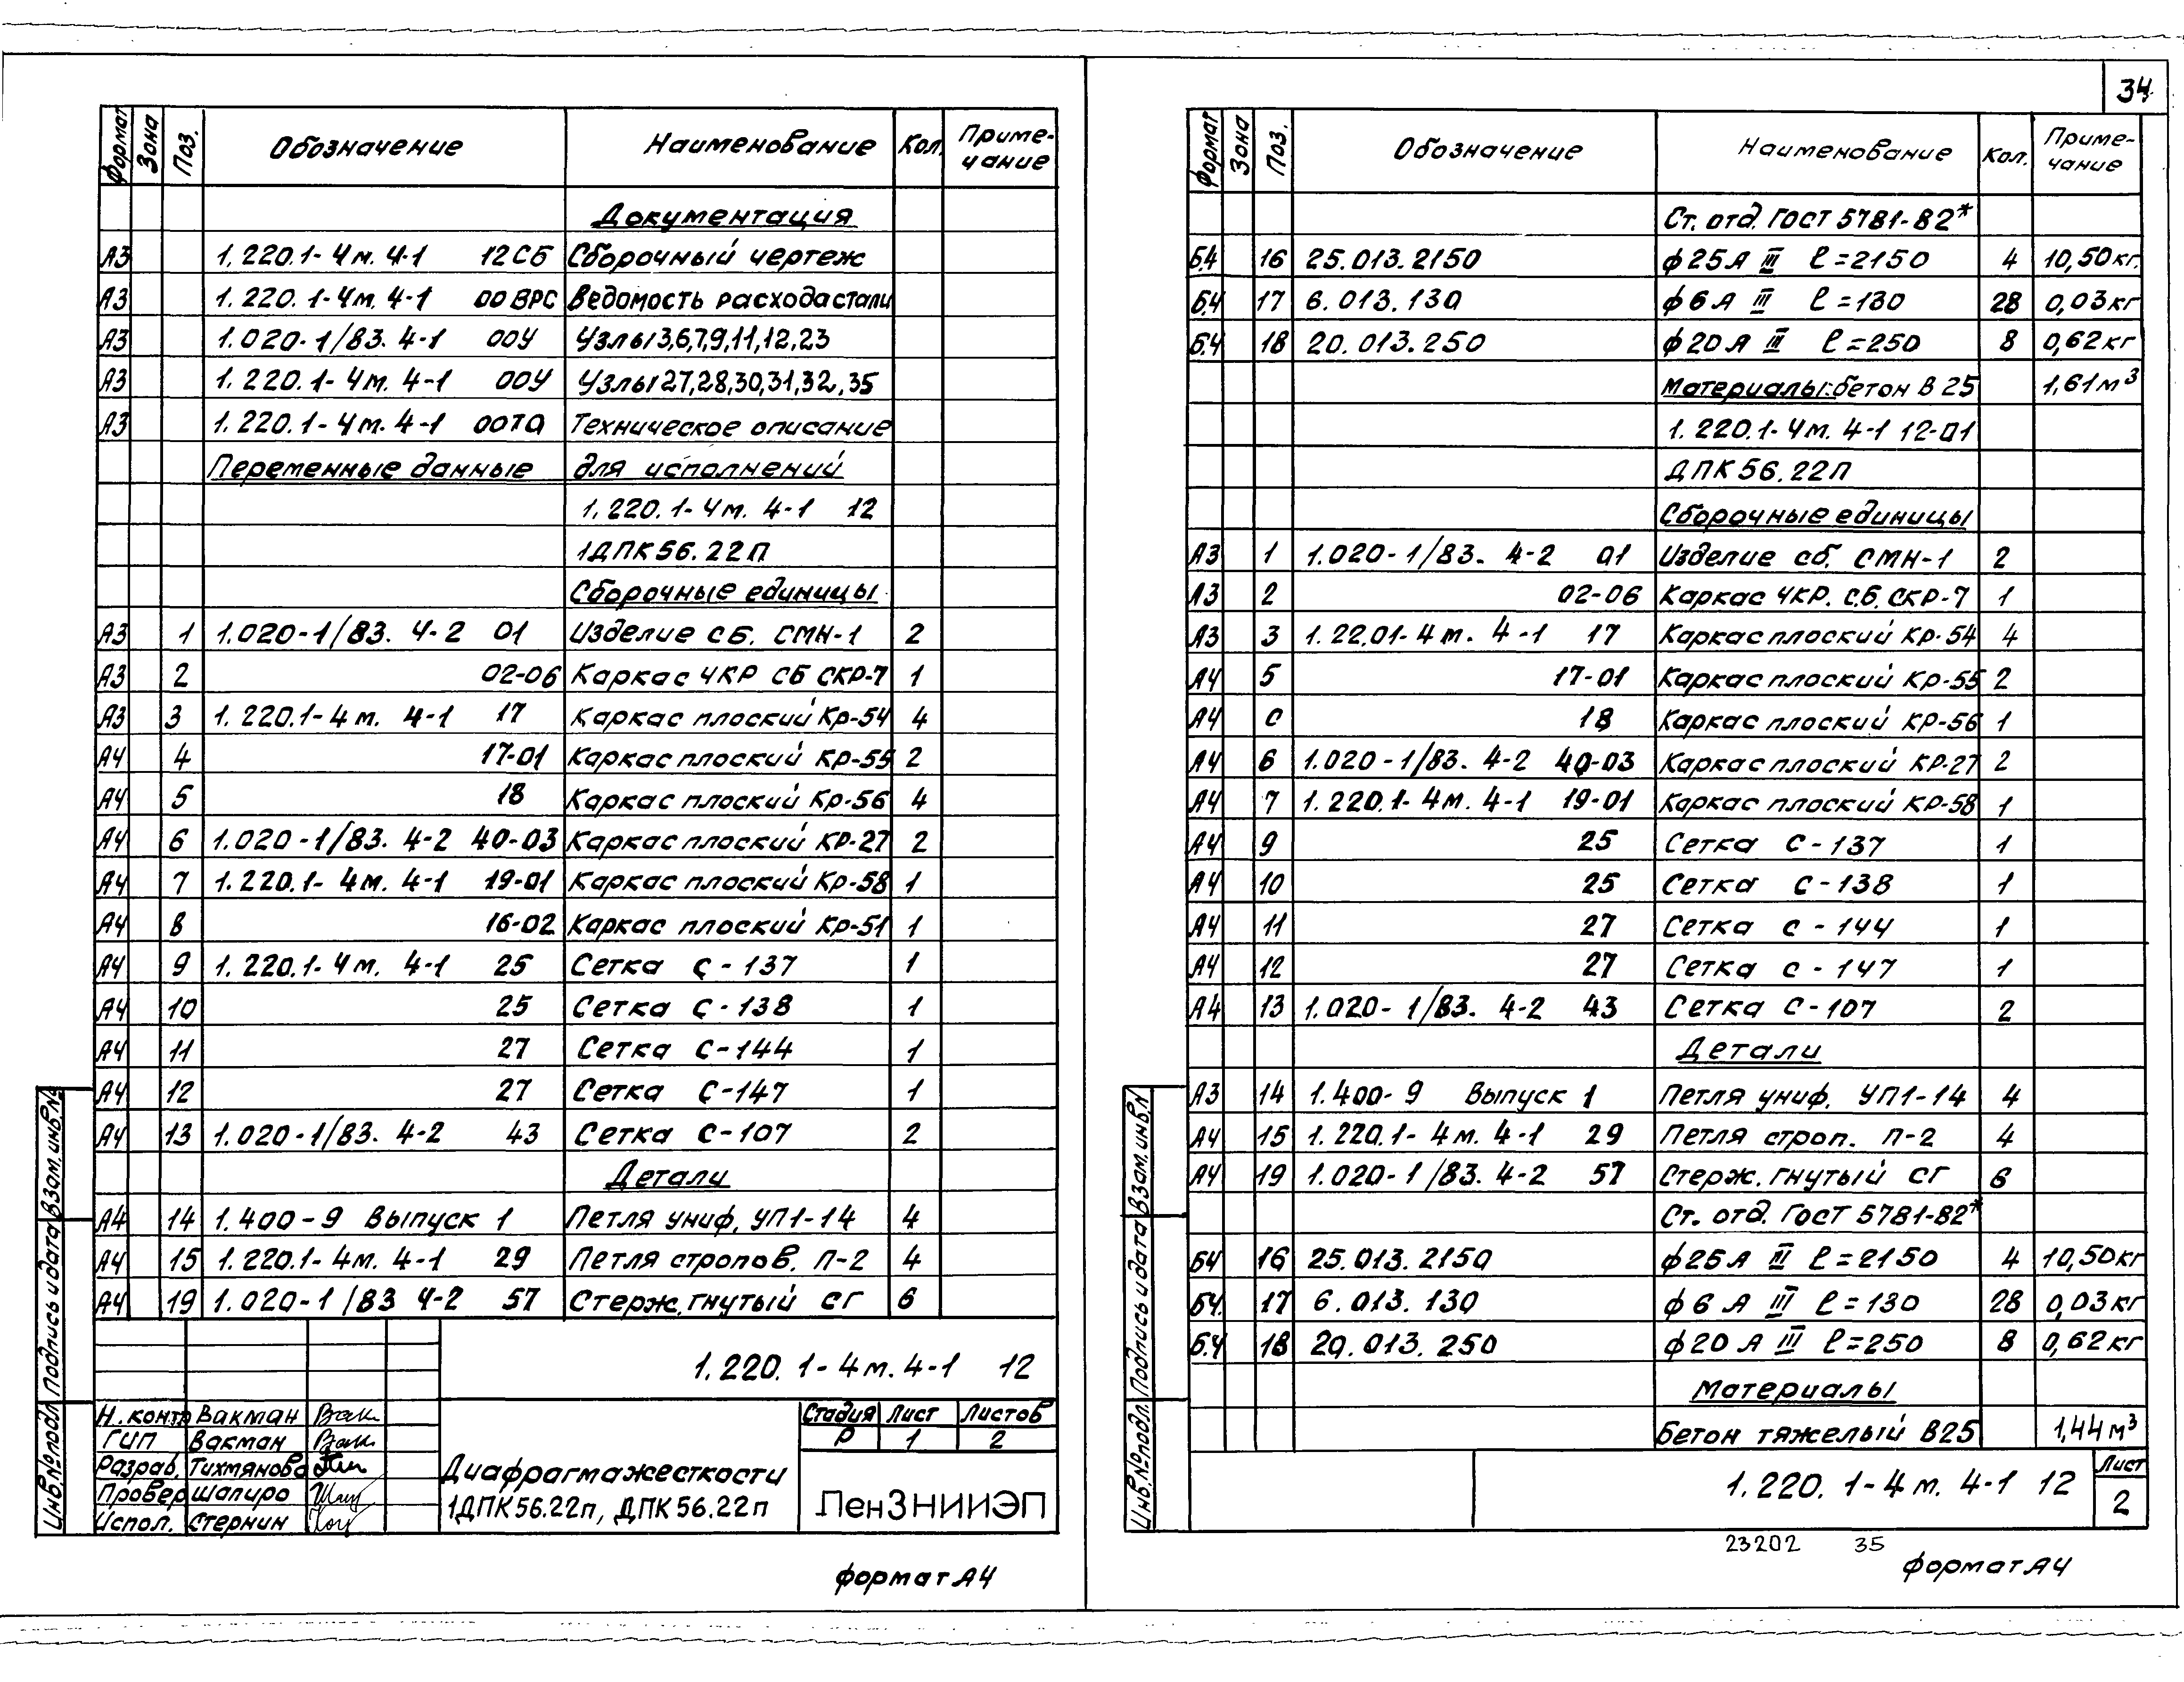 34
Формат Зона Поз. Обозначение Наименование Кол. Приме-
чание
Документация
А3 1.220.1-4м. 4-1 12СБ Сборочный чертеж
А3 1.220.1-4м. 4-1 00ВРС Ведомость расхода стали
А3 1.020-1/83. 4-1 00У Узлы 3,6,7,9,11,12,23
А3 1.220.1-4м. 4-1 00У Узлы 27,28,30,31,32,35
А3 1.220.1-4м. 4-1 00ТО Техническое описание
Переменные данные для исполнений
1.220.1-4м. 4-1 12
1ДПК56.22П
Сборочные единицы
А3 1 1.020-1/83. 4-2 01 Изделие сб. СМН-1 2
А3 2 02-06 Каркас ЧКР СБ СКР-7 1
А3 3 1.220.1-4м. 4-1 17 Каркас плоский Кр-54 4
А4 4 17-01 Каркас плоский Кр-55 2
А4 5 18 Каркас плоский Кр-56 4
А4 6 1.020-1/83. 4-2 40-03 Каркас плоский КР-27 2
А4 7 1.220.1-4м. 4-1 19-01 Каркас плоский Кр-58 1
А4 8 16-02 Каркас плоский Кр-51 1
А4 9 1.220.1-4м. 4-1 25 Сетка С-137 1
А4 10 25 Сетка С-138 1
А4 11 27 Сетка С-144 1
А4 12 27 Сетка С-147 1
А4 13 1.020-1/83. 4-2 43 Сетка С-107 2
Детали
А4 14 1.400-9 Выпуск 1 Петля униф. УП1-14 4
А4 15 1.220.1-4м. 4-1 29 Петля стропов. П-2 4
А4 19 1.020-1/83 4-2 57 Стерж. гнутый СГ 6
1.220.1-4м. 4-1 12
Н.контр Вакман Вак
ГИП Вакман Вак
Разраб. Тихмянова
Провер Шапиро
Испол. Стернин
Диафрагма жесткости
1ДПК56.22п, ДПК56.22п
Стадия Лист Листов
Р 1 2
ЛенЗНИИЭП
Инв.№подл. Подпись и дата Взам.инв.№
формат А4
Формат Зона Поз. Обозначение Наименование Кол. Приме-
чание
Ст. отд. ГОСТ 5781-82*
Б.4 16 25.013.2150 ф25А III ℓ=2150 4 10,50кг.
Б.4 17 6.013.130 ф6А III ℓ=130 28 0,03кг
Б.4 18 20.013.250 ф20А III ℓ=250 8 0,62кг
Материалы: бетон В25 1,61м³
1.220.1-4м. 4-1 12-01
ДПК56.22П
Сборочные единицы
А3 1 1.020-1/83. 4-2 01 Изделие сб. СМН-1 2
А3 2 02-06 Каркас ЧКР. с.б. СКР-7 1
А3 3 1.22.01-4м. 4-1 17 Каркас плоский Кр-54 4
А4 5 17-01 Каркас плоский Кр-55 2
А4 С 18 Каркас плоский КР-56 1
А4 6 1.020-1/83. 4-2 40-03 Каркас плоский КР-27 2
А4 7 1.220.1-4м. 4-1 19-01 Каркас плоский КР-58 1
А4 9 25 Сетка С-137 1
А4 10 25 Сетка С-138 1
А4 11 27 Сетка С-144 1
А4 12 27 Сетка С-147 1
А4 13 1.020-1/83. 4-2 43 Сетка С-107 2
Детали
А3 14 1.400-9 Выпуск 1 Петля униф. УП1-14 4
А4 15 1.220.1-4м. 4-1 29 Петля строп. П-2 4
А4 19 1.020-1/83. 4-2 57 Стерж. гнутый СГ 6
Ст. отд. ГОСТ 5781-82*
Б4 16 25.013.2150 ф25А III ℓ=2150 4 10,50кг
Б4. 17 6.013.130 ф6А III ℓ=130 28 0,03кг
Б.4 18 20.013.250 ф20А III ℓ=250 8 0,62кг
Материалы
Бетон тяжелый В25 1,44м³
1.220.1-4м. 4-1 12
Лист
2
Инв.№подл. Подпись и дата Взам.инв.N
23202 35
формат А4